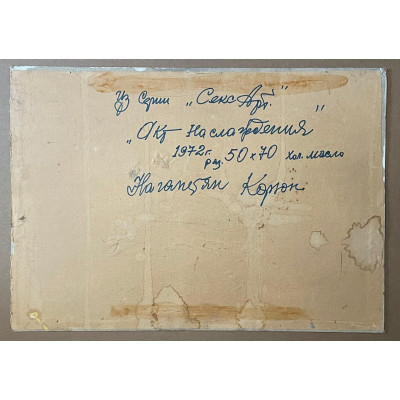 Из Серии „Секс Арт."
„Акт Наслаждения"
1972г. раз. 50 х 70 Хол. масло
Наганцян Корюн